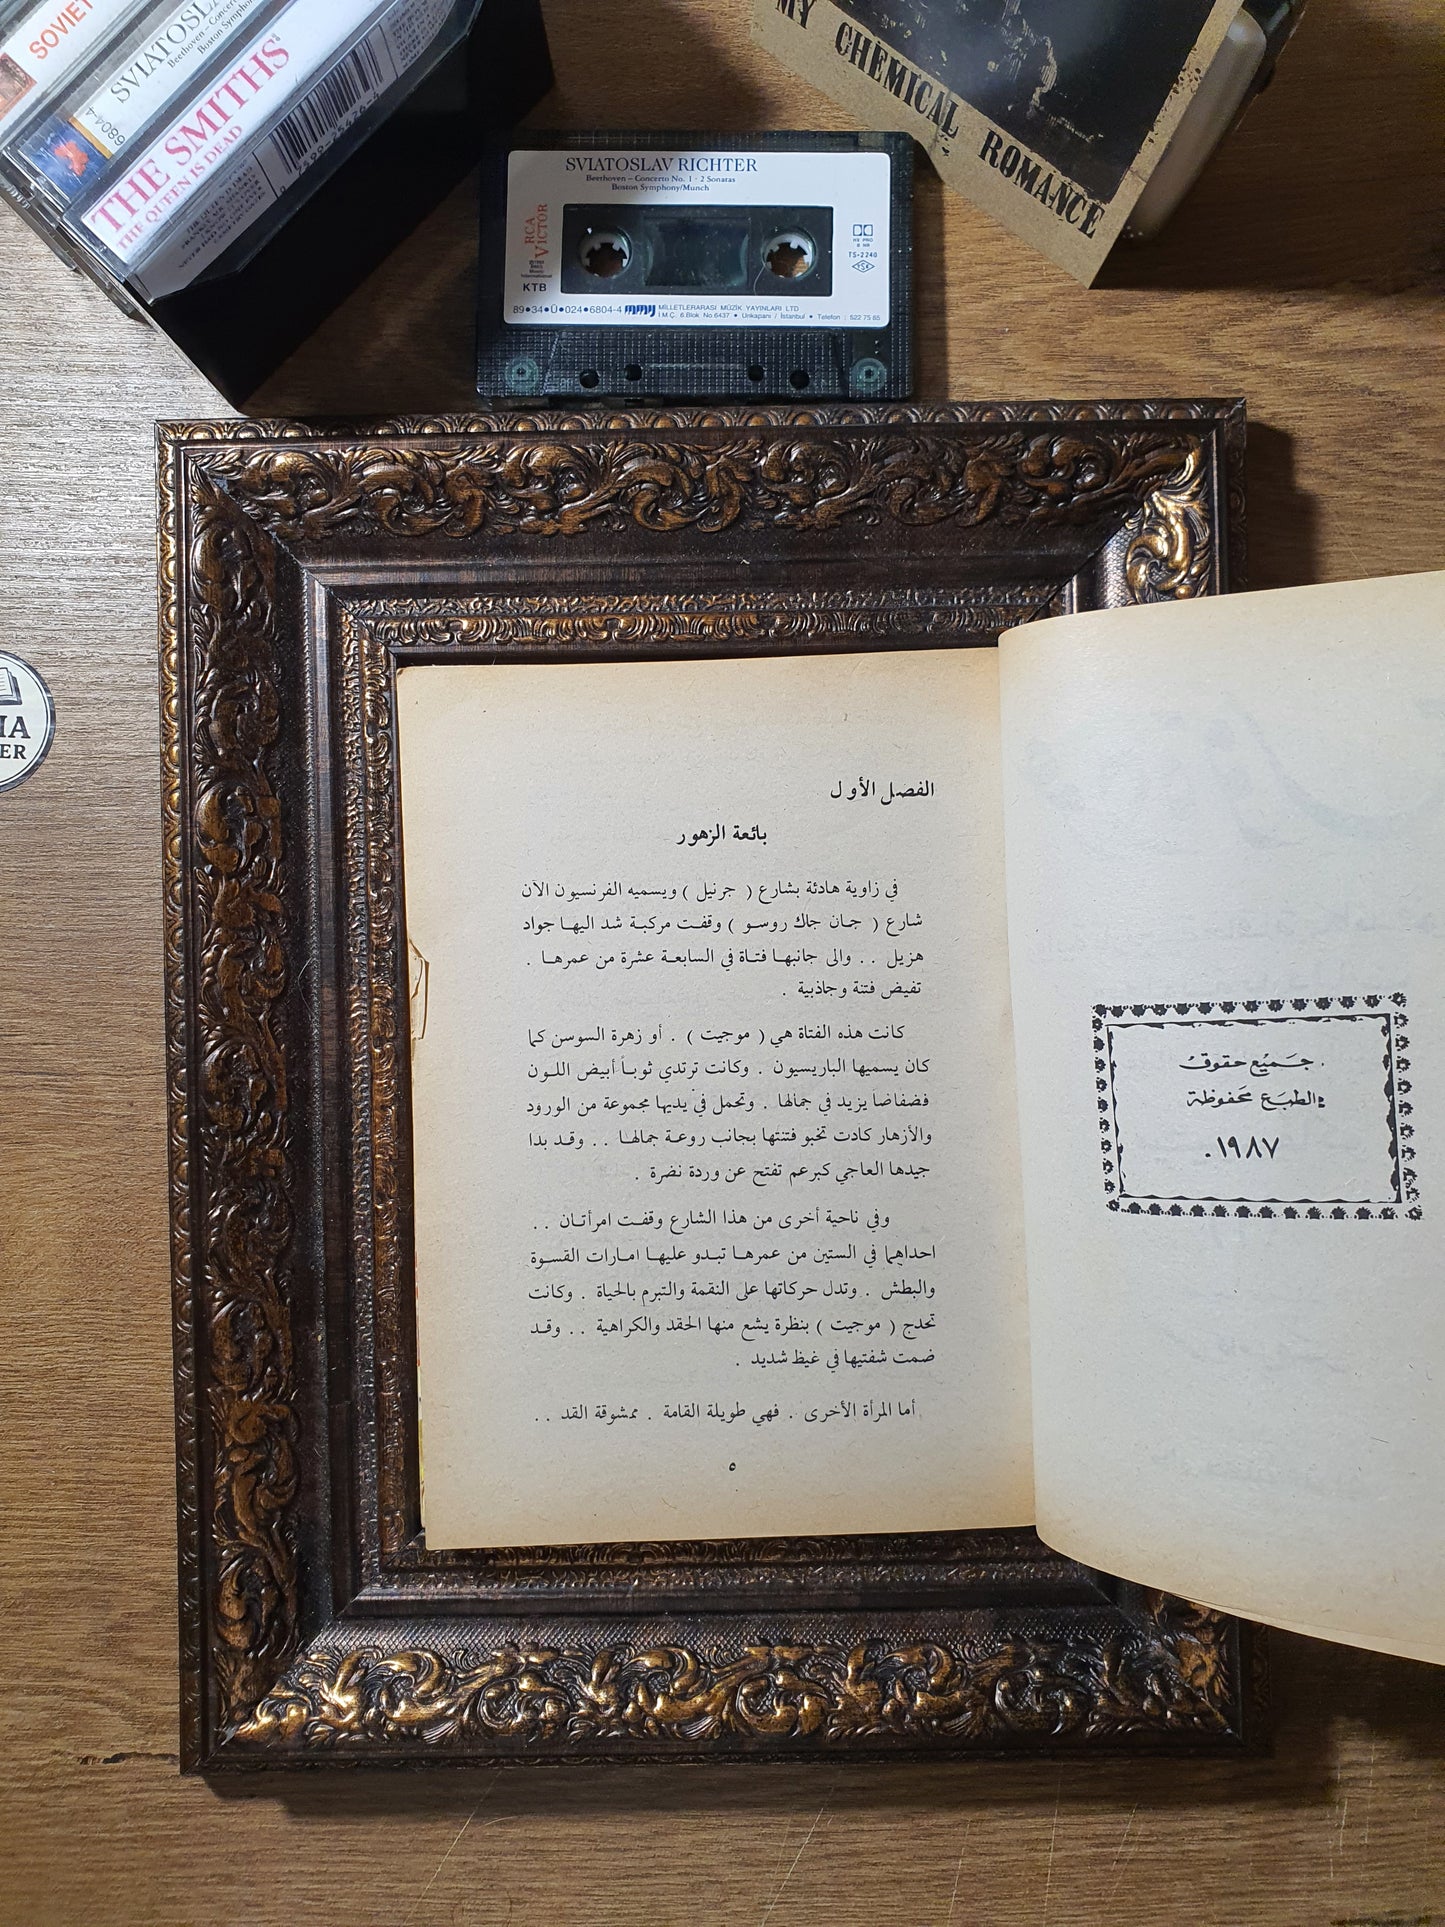 SOVIET
SVIATOSLAV
Beethoven – Concerto
Boston Symphony
6804-4
THE SMITHS
THE QUEEN IS DEAD
MY CHEMICAL ROMANCE
SVIATOSLAV RICHTER
Beethoven – Concerto No. 1 · 2 Sonatas
Boston Symphony/Munch
RCA VICTOR
KTB
HX PRO
B NR
TS-2240
TSE
89•34•Ü•024•6804-4 MMY MİLLETLERARASI MÜZİK YAYINLARI LTD
İ.M.Ç. 6.Blok No.6437 • Unkapanı / İstanbul • Telefon : 522 75 65
IA
ER
الفصل الأول
بائعة الزهور
في زاوية هادئة بشارع ( جرنيل ) ويسميه الفرنسيون الآن
شارع ( جان جاك روسو ) وقفت مركبة شد اليها جواد
هزيل . . والى جانبها فتاة في السابعة عشرة من عمرها .
تفيض فتنة وجاذبية .
كانت هذه الفتاة هي ( موجيت ) . أو زهرة السوسن كما
كان يسميها الباريسيون . وكانت ترتدي ثوباً أبيض اللون
فضفاضا يزيد في جمالها . وتحمل في يديها مجموعة من الورود
والأزهار كادت تخبو فتنتها بجانب روعة جمالها . . وقد بدا
جيدها العاجي كبرعم تفتح عن وردة نضرة .
وفي ناحية أخرى من هذا الشارع وقفت امرأتان . .
احداهما في الستين من عمرها تبدو عليها امارات القسوة
والبطش . وتدل حركاتها على النقمة والتبرم بالحياة . وكانت
تحدج ( موجيت ) بنظرة يشع منها الحقد والكراهية . . وقد
ضمت شفتيها في غيظ شديد .
أما المرأة الأخرى . فهي طويلة القامة . ممشوقة القد . .
٥
جميع حقوق
الطبع محفوظة
١٩٨٧.